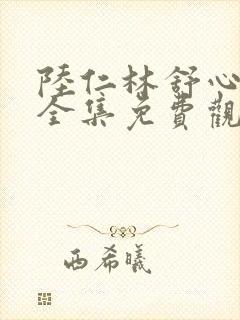 陸仁林舒心
全集免費觀
西希曦